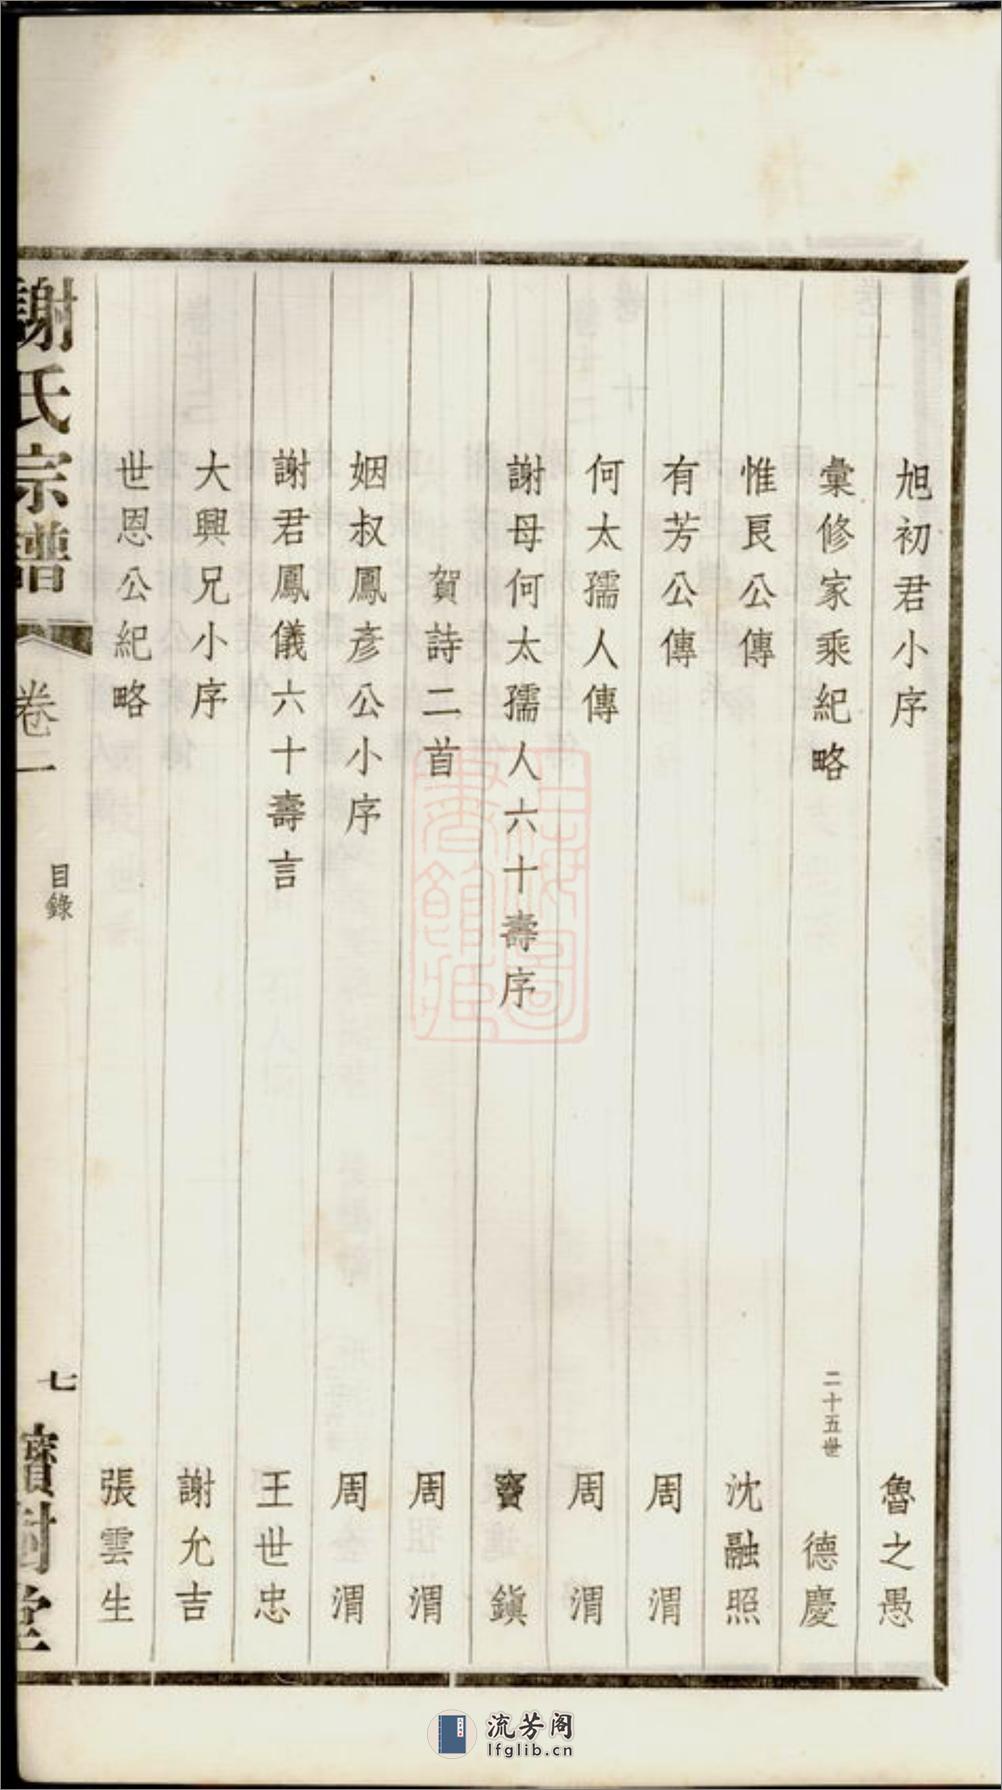 旭初君小序 魯之愚
彙修家乘紀略 二十五世 德慶
惟良公傳 沈融照
有芳公傳 周渭
何太孺人傳 周渭
謝母何太孺人六十壽序 竇鎮
賀詩二首 周渭
姻叔鳳彥公小序 周渭
謝君鳳儀六十壽言 王世忠
大興兄小序 謝允吉
世恩公紀略 張雲生
謝氏宗譜 卷一 目錄 七 寶樹堂
上海圖書館藏
流芳阁
lfglib.cn